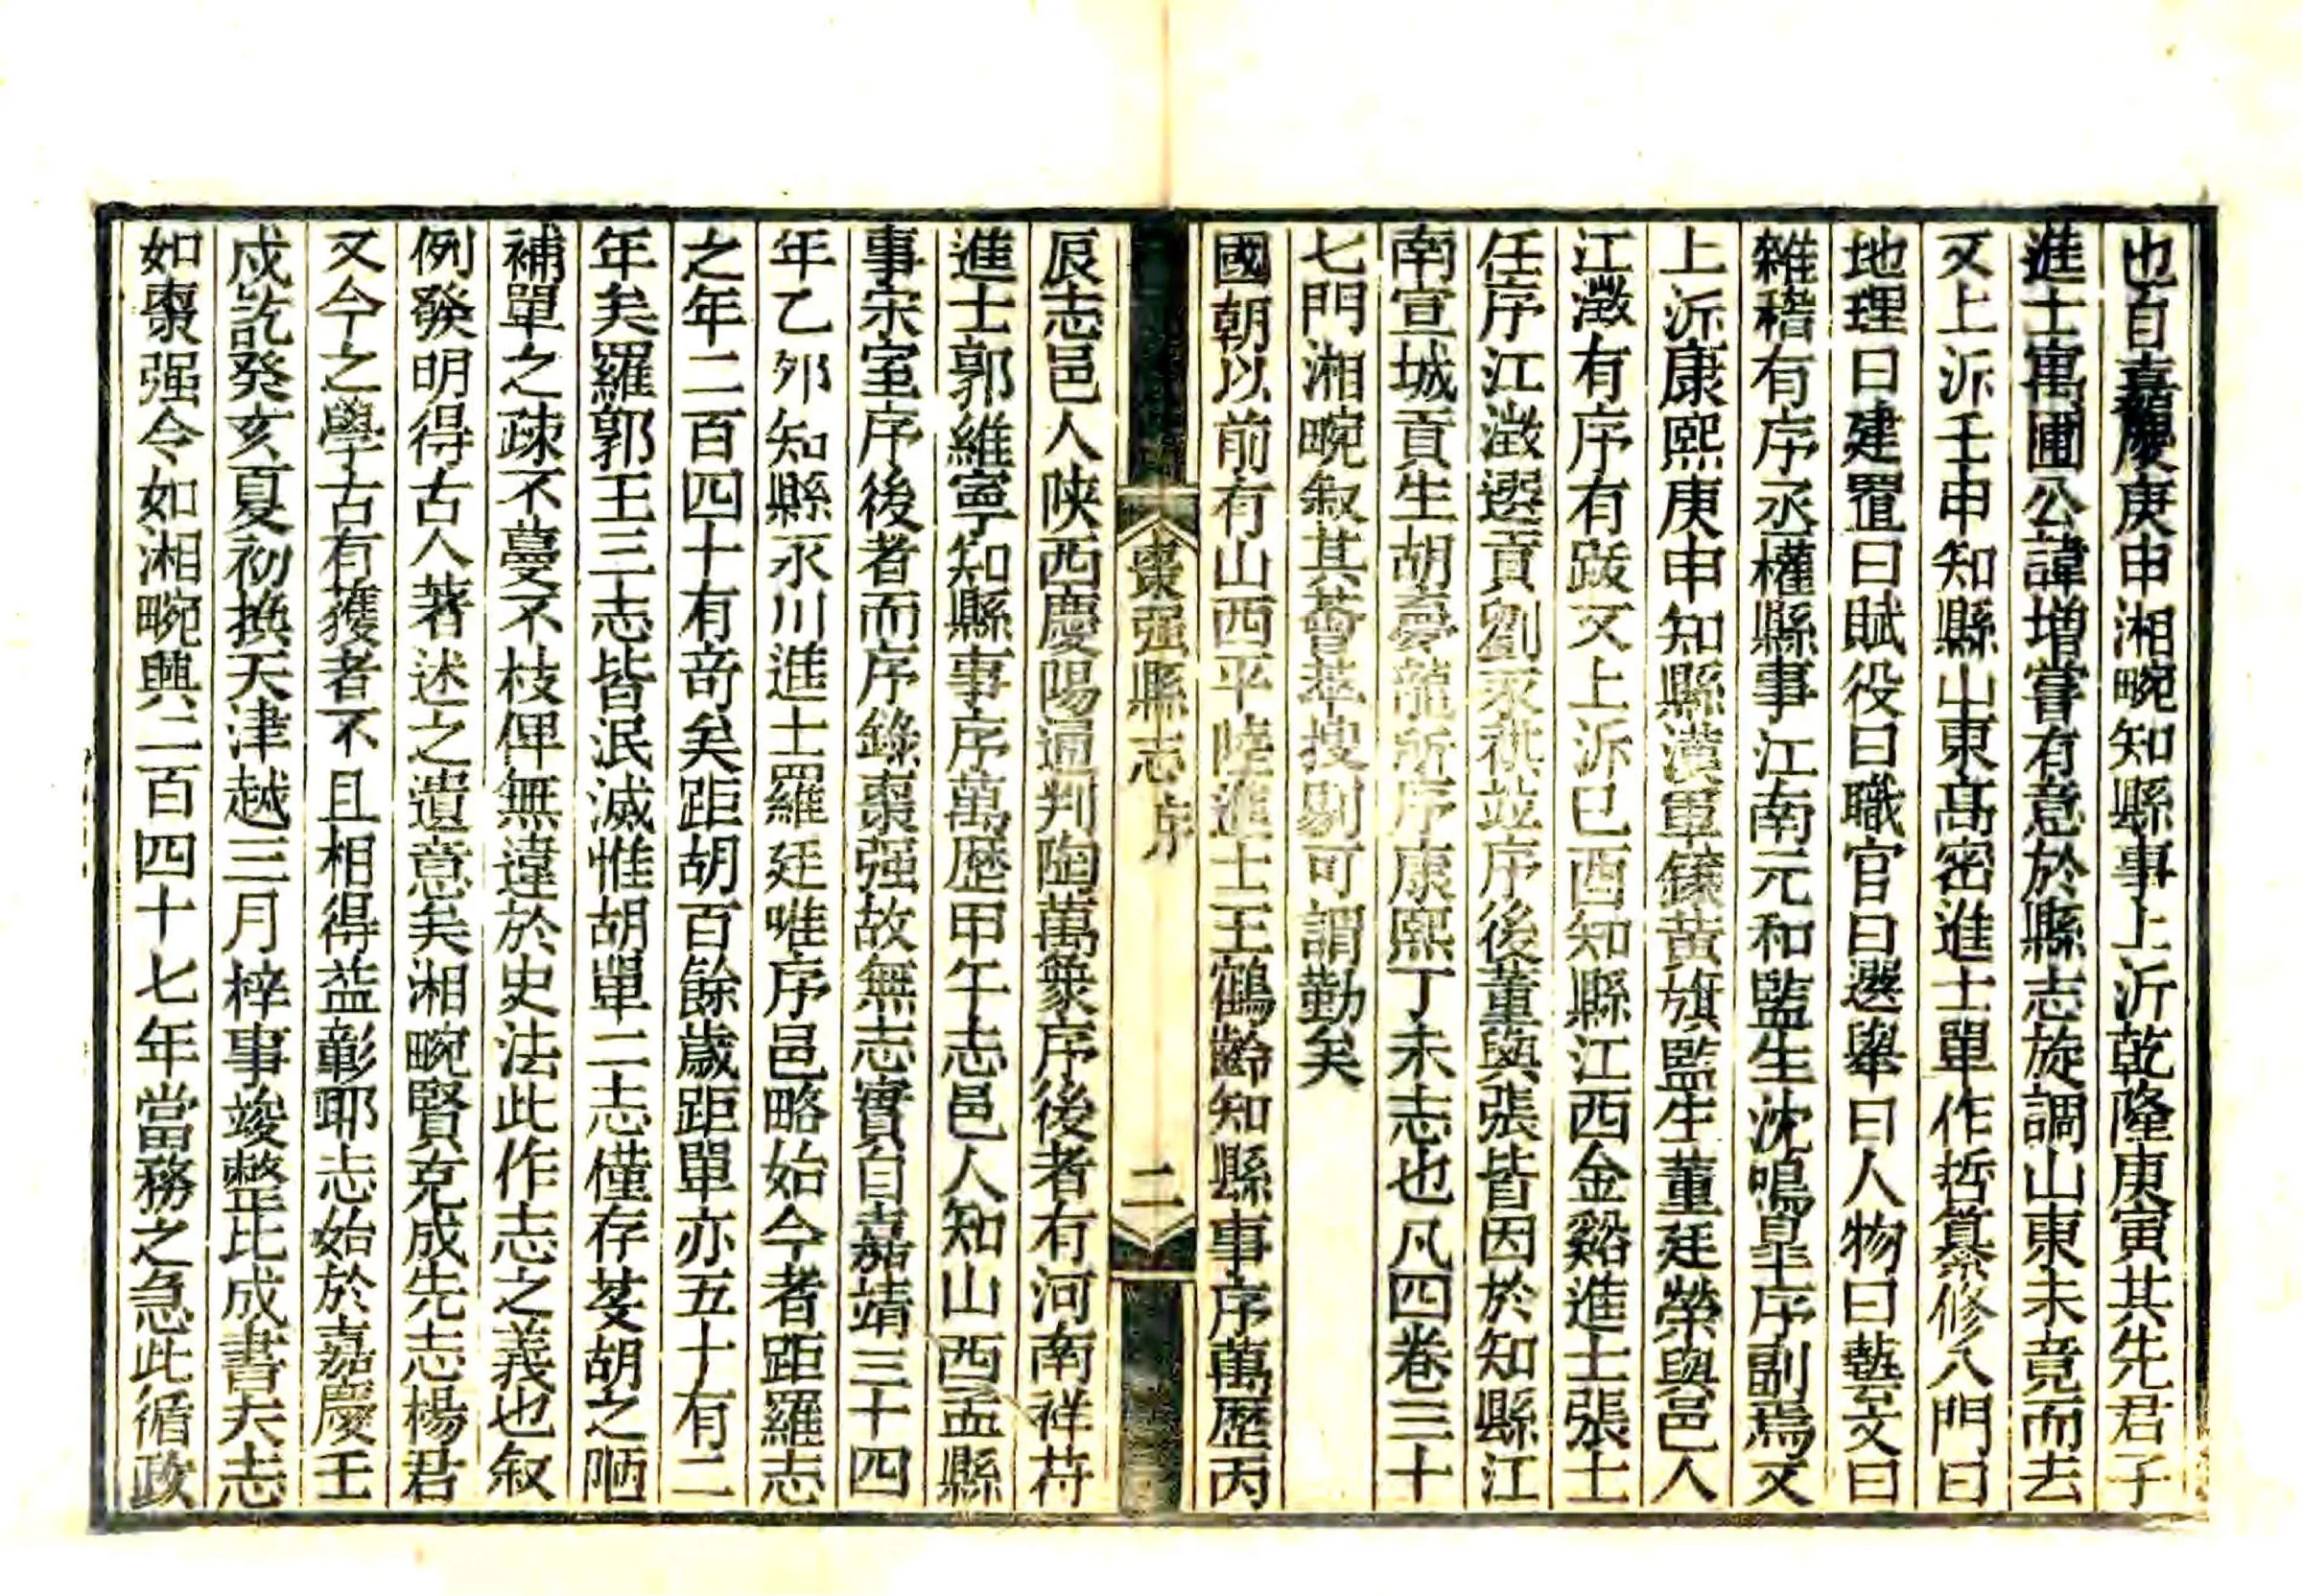 也自嘉慶庚申湘畹知縣事上沂乾隆庚寅其先君子
進士寓圃公諱增嘗有意於縣志旋調山東未竟而去
又上泝壬申知縣山東高密進士單作哲纂修八門曰
地理曰建置曰賦役曰職官曰選舉曰人物曰藝文曰
雜稽有序丞權縣事江南元和監生沈鳴皐序副焉又
上泝康熙庚申知縣漢軍鑲黃旗監生董廷榮與邑人
江澂有序有跋又上泝己酉知縣江西金谿進士張士
任序江澂選貢劉永祺並序後董與張皆因於知縣江
南宣城貢生胡夢龍所序康熙丁未志也凡四卷三十
七門湘畹叙其薈萃搜剔可謂勤矣
國朝以前有山西平陸進士王鶴齡知縣事序萬歷丙
辰志邑人陝西慶陽通判陶萬象序後者有河南祥符
進士郭維寧知縣事序萬歷甲午志邑人知山西盂縣
事宋室序後者而序錄棗强故無志實自嘉靖三十四
年乙夘知縣永川進士羅廷唯序邑略始今者距羅志
之年二百四十有奇矣距胡百餘歲距單亦五十有二
年矣羅郭王三志皆泯滅惟胡單二志僅存芟胡之陋
補單之疎不蔓不枝俾無違於史法此作志之義也叙
例發明得古人著述之遺意矣湘畹賢克成先志楊君
又今之學古有獲者不且相得益彰耶志始於嘉慶壬
戌訖癸亥夏初換天津越三月梓事竣整比成書夫志
如棗强令如湘畹興二百四十七年當務之急此循政
棗强縣志序
二